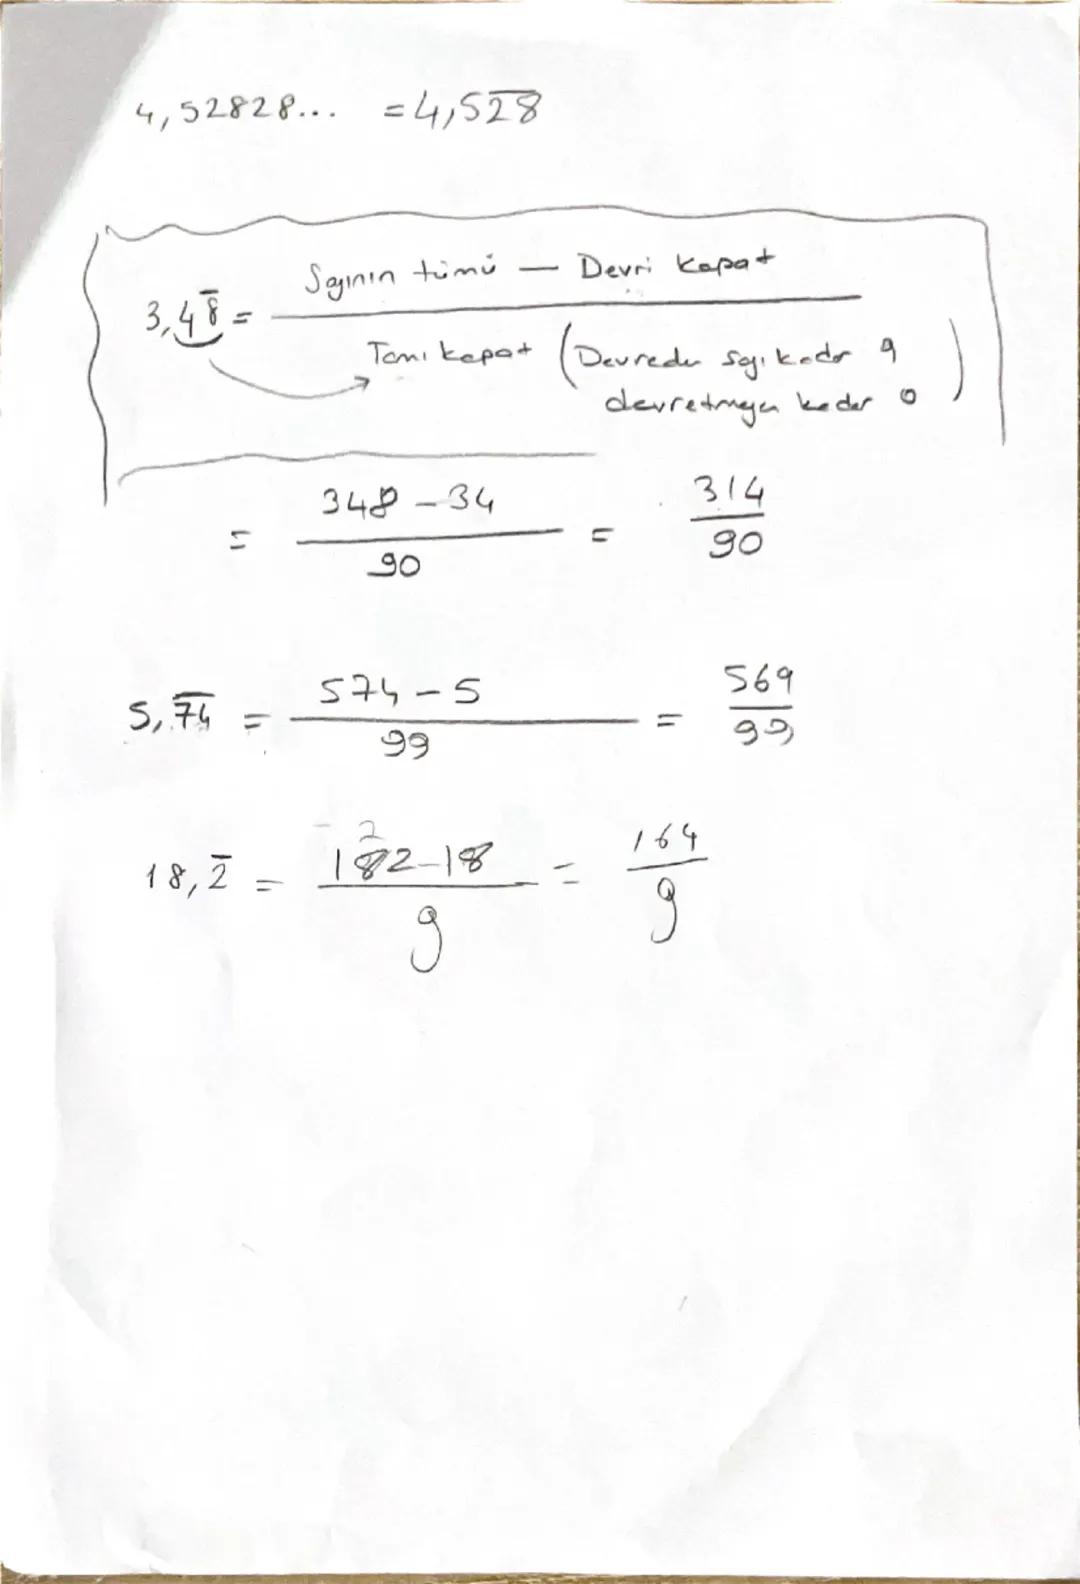 4,52828... = 4,52̅8̅
3,48̅ = Sayının tümü — Devri kapat
Tamı kapat (Devreden sayı kadar 9
devretmeyen kadar 0)
= 348 - 34 / 90 = 314 / 90
5,7̅4̅ = 574 - 5 / 99 = 569 / 99
18,2̅ = 182 - 18 / 9 = 164 / 9